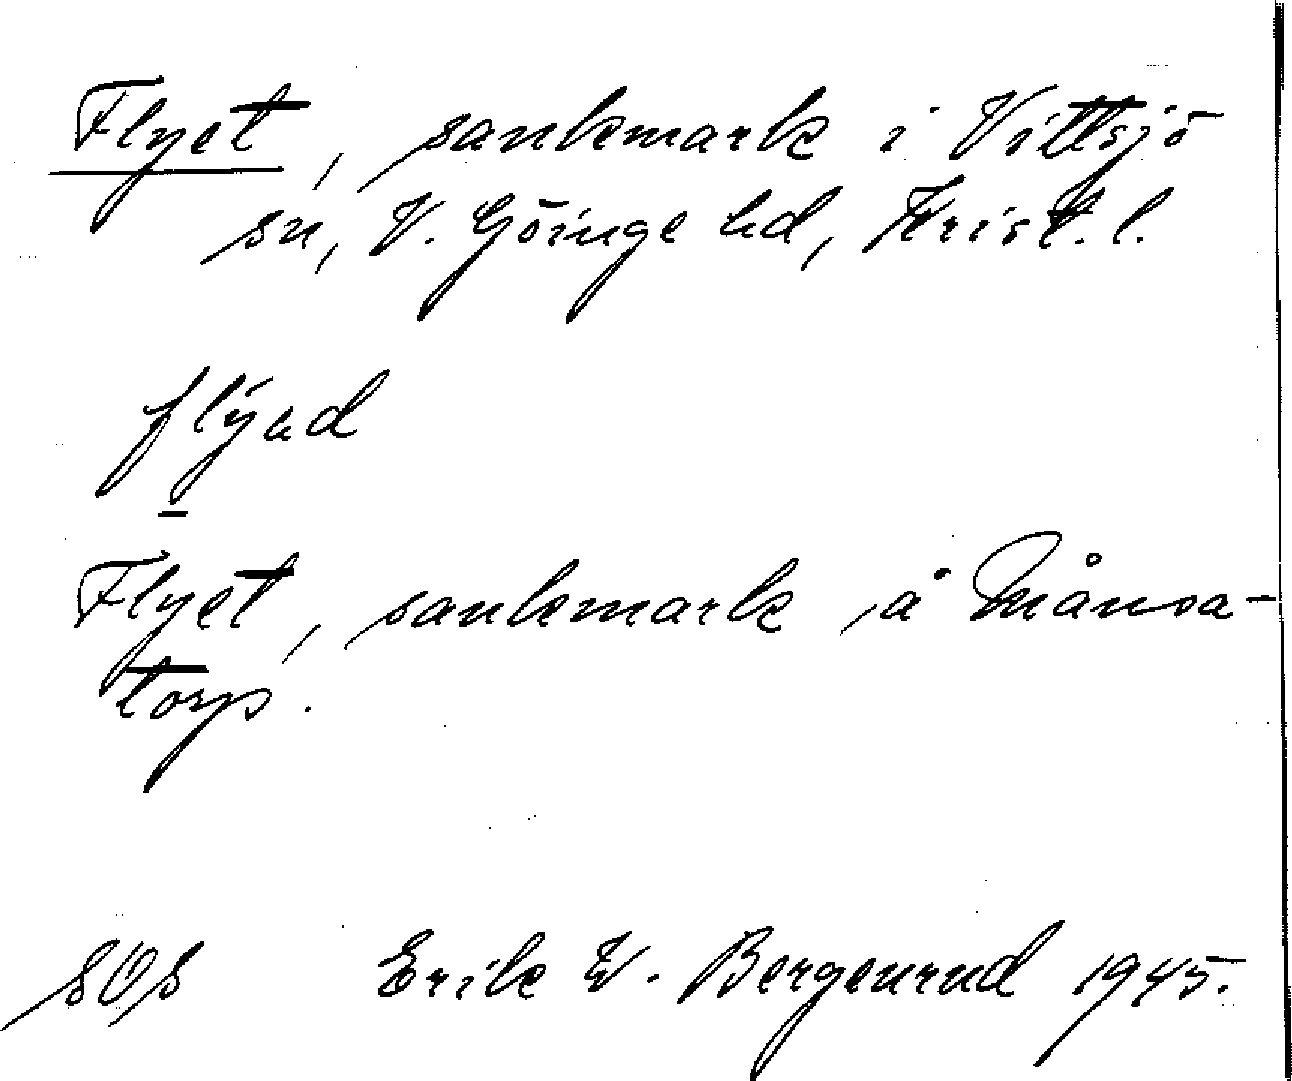 Flyet, sankmark i Vittsjö
sn, V. Göinge hd, Krist. l.
flýad
Flyet, sankmark å Månsa-
torp.
SOS Erik W. Bergenrud 1945.